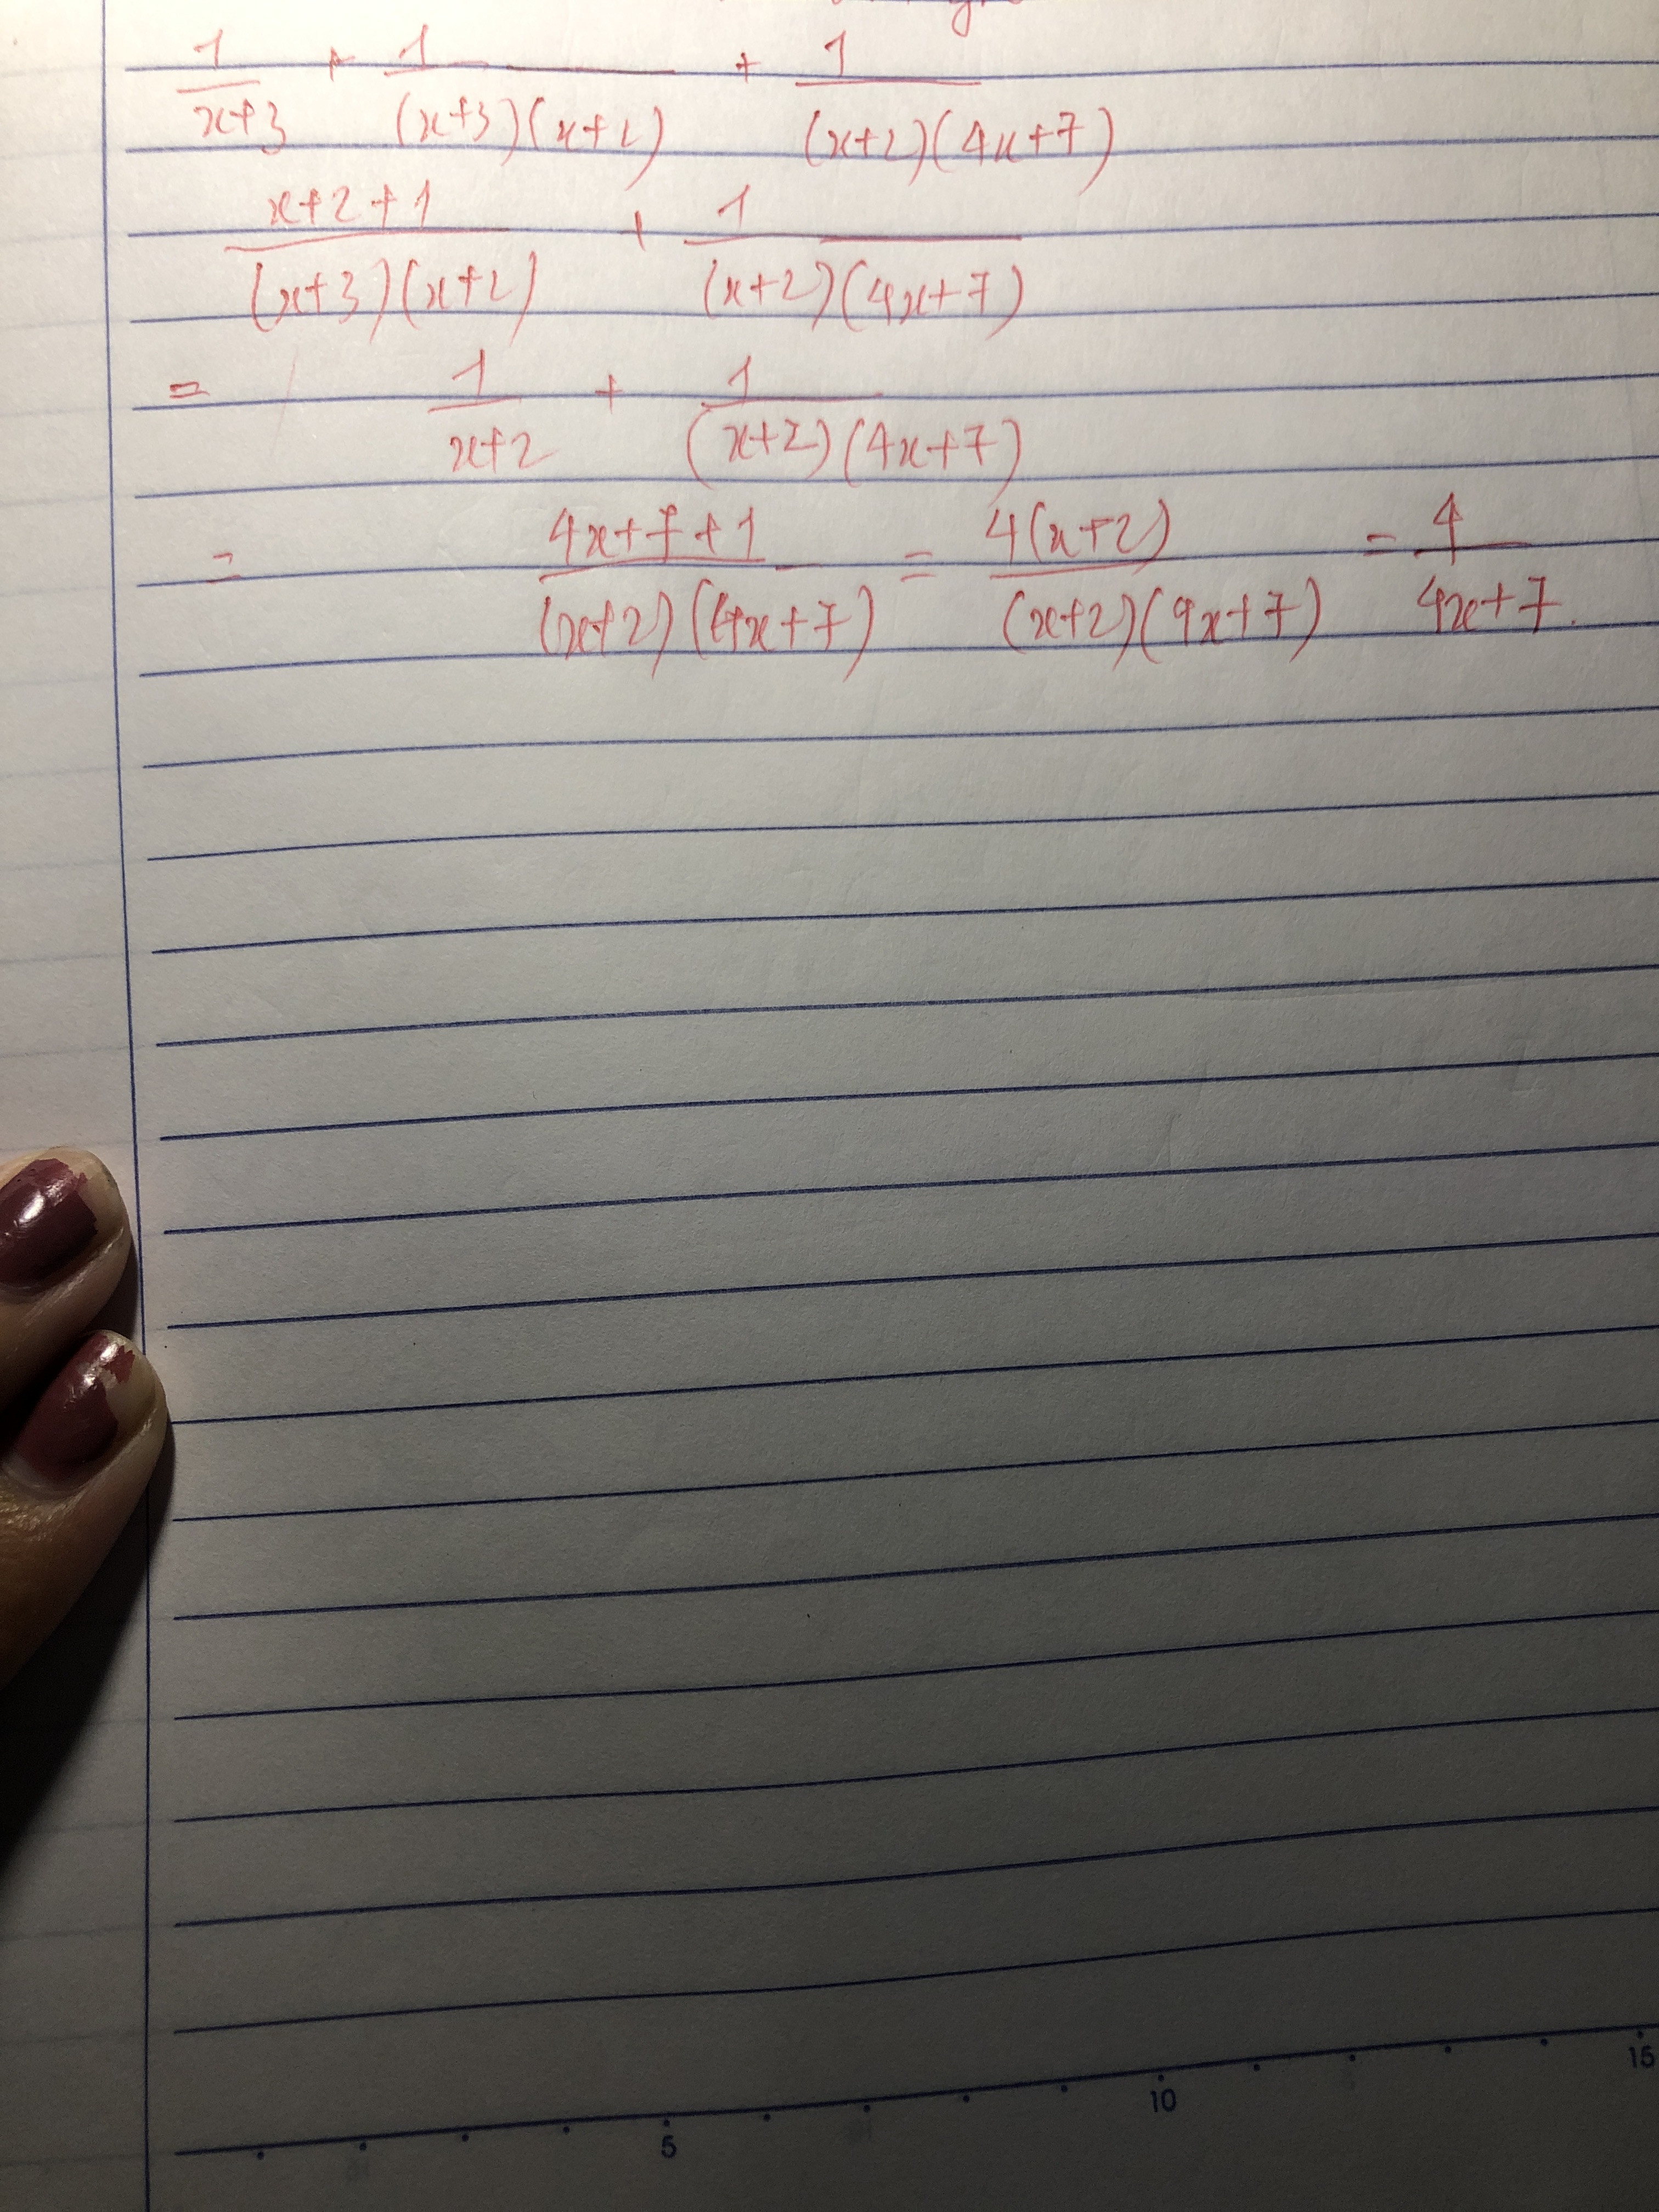 1/(x+3) + 1/((x+3)(x+2)) + 1/((x+2)(4x+7))
(x+2+1)/((x+3)(x+2)) + 1/((x+2)(4x+7))
= 1/(x+2) + 1/((x+2)(4x+7))
= (4x+7+1)/((x+2)(4x+7)) = 4(x+2)/((x+2)(4x+7)) = 4/(4x+7).
5 10 15